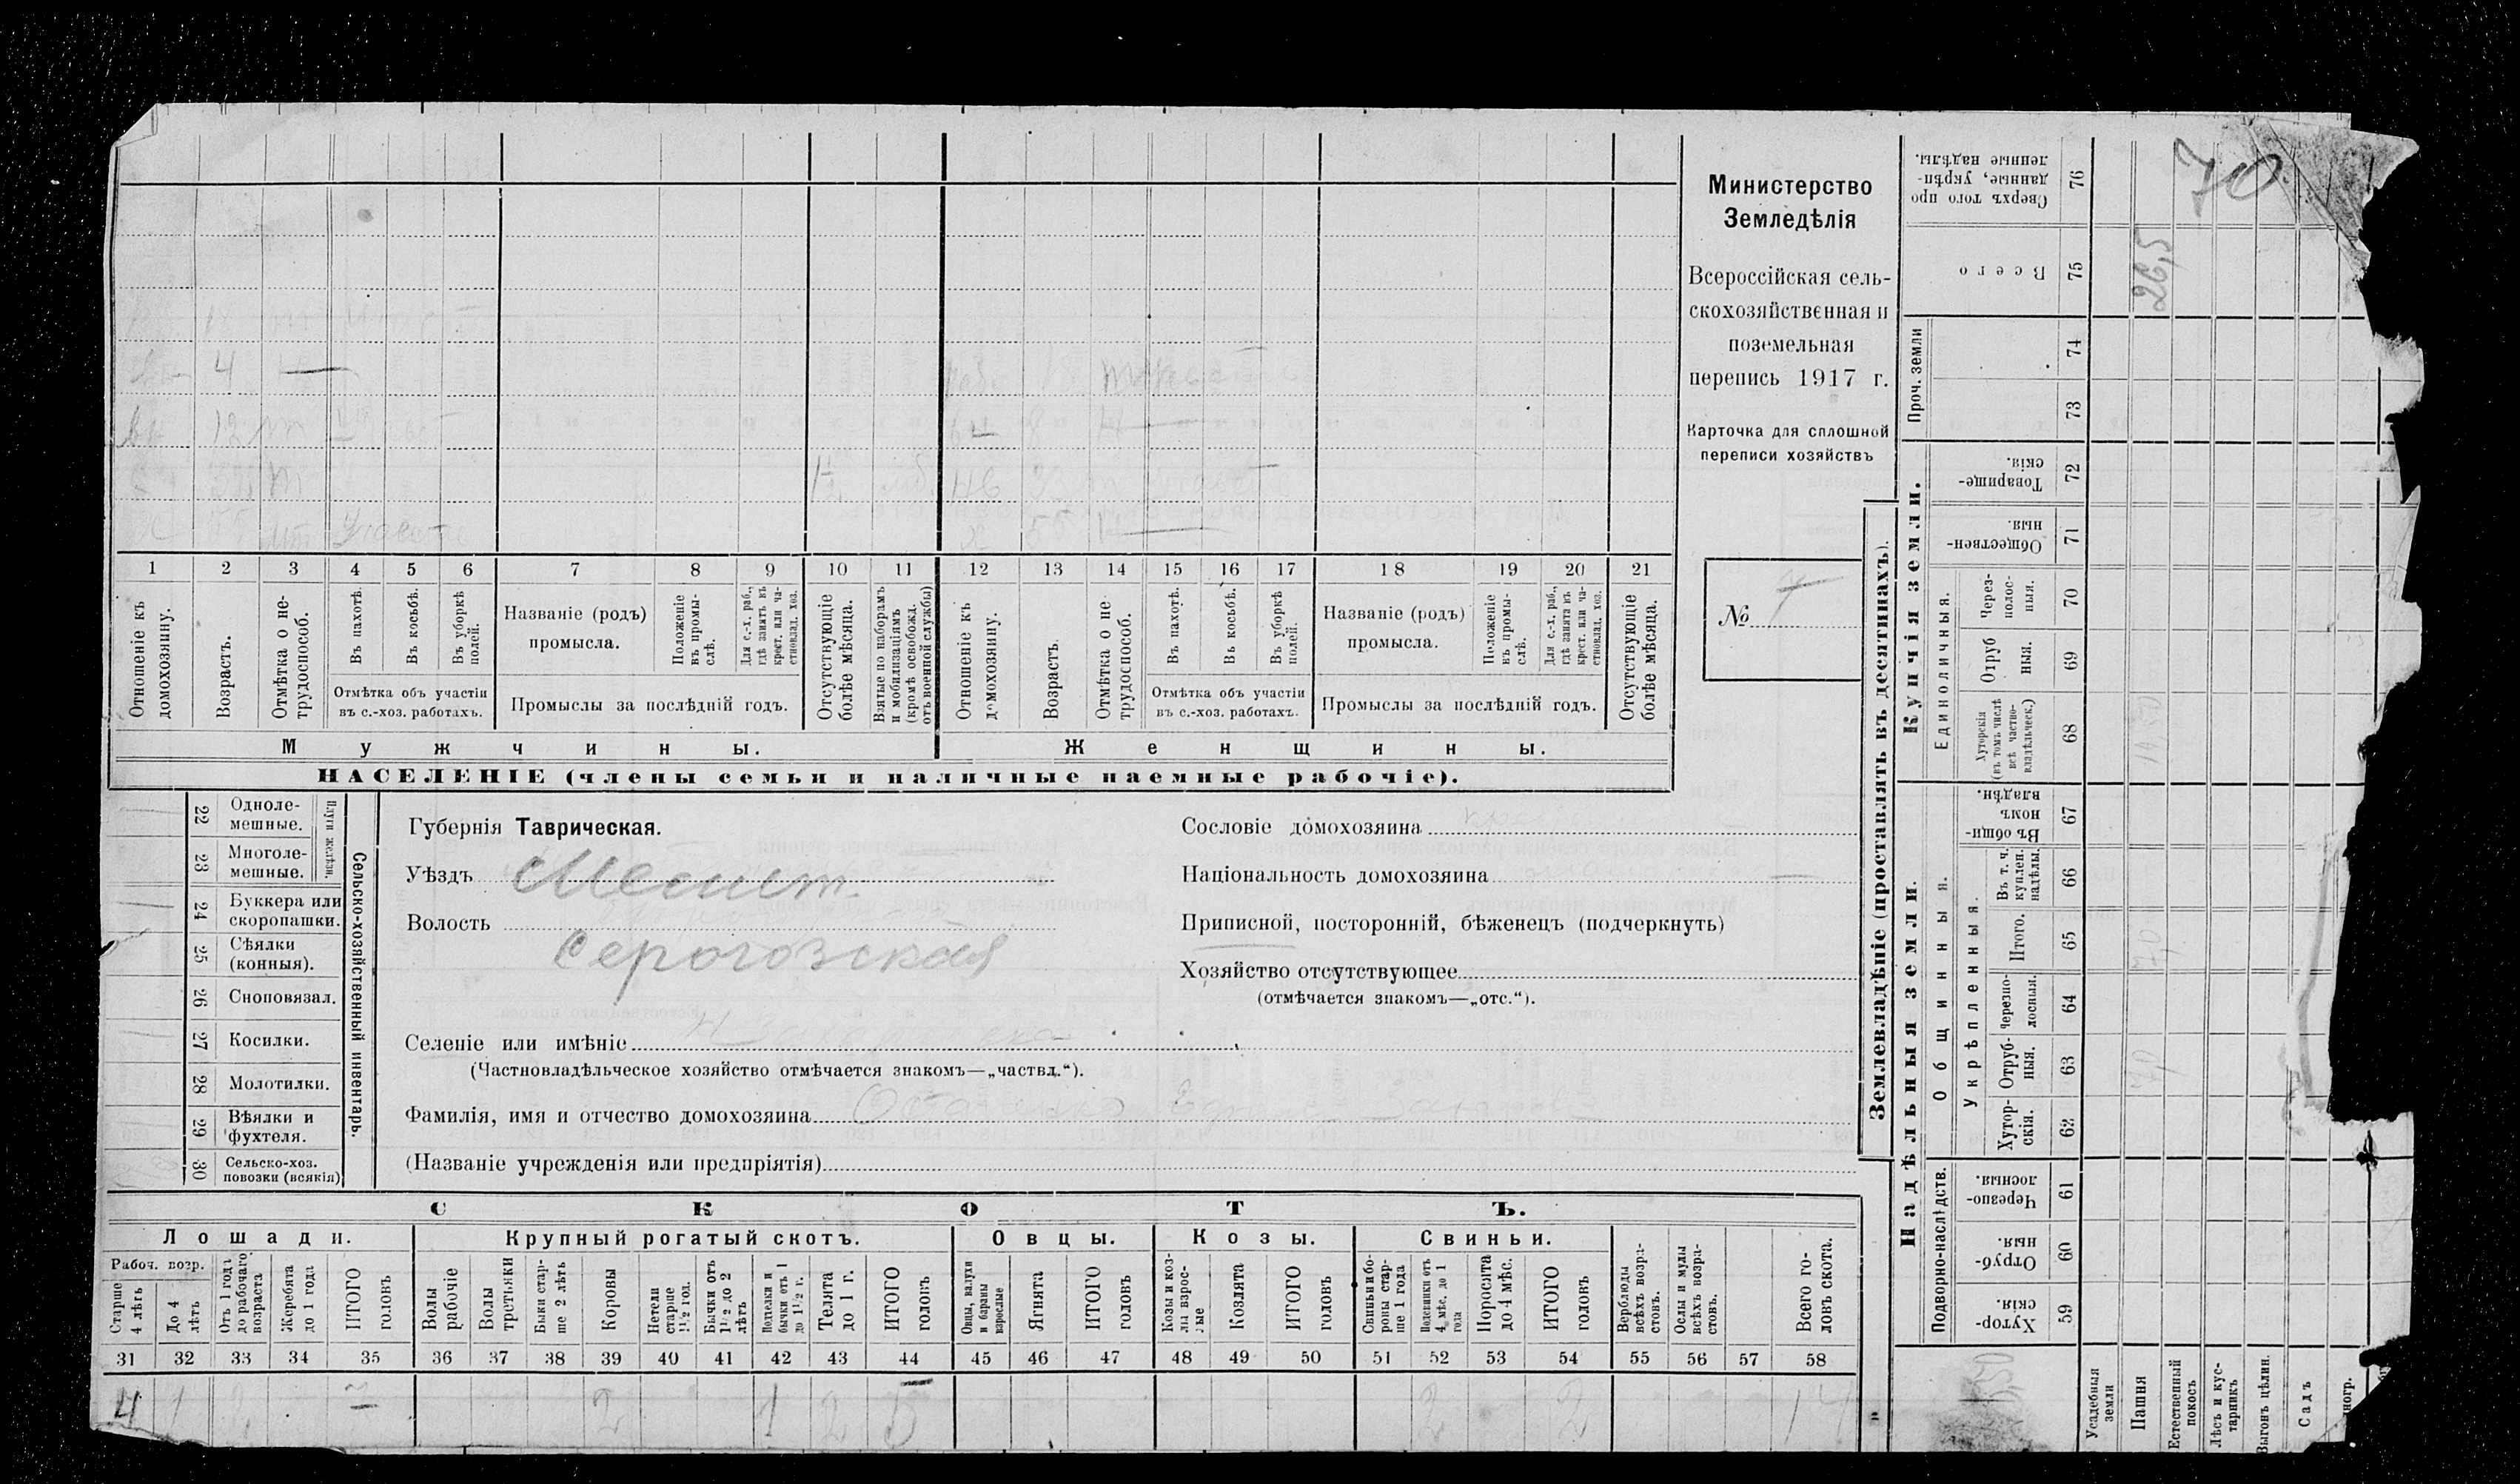 70
Министерство
Земледѣлія
Всероссійская сель-
скохозяйственная и
поземельная
перепись 1917 г.
Карточка для сплошной
переписи хозяйствъ
№ 7
4
12
1 2 3 4 5 6 7 8 9 10 11 12 13 14 15 16 17 18 19 20 21
Отношеніе къ домохозяину.
Возрастъ.
Отмѣтка о не-трудоспособ.
Въ пахотѣ.
Въ косьбѣ.
Въ уборкѣ полей.
Отмѣтка объ участіи
въ с.-хоз. работахъ.
Названіе (родъ)
промысла.
Положеніе въ промы-слѣ.
Для с.-х. раб., гдѣ занятъ въ крест. или ча-стновлад. хоз.
Промыслы за послѣдній годъ.
Отсутствующіе болѣе мѣсяца.
Взятые по наборамъ и мобилизаціямъ (кромѣ освобожд. отъ военной службы)
Отношеніе къ домохозяину.
Возрастъ.
Отмѣтка о не трудоспособ.
Въ пахотѣ.
Въ косьбѣ.
Въ уборкѣ полей.
Отмѣтка объ участіи
въ с.-хоз. работахъ.
Названіе (родъ)
промысла.
Положеніе въ промы-слѣ.
Для с.-х. раб., гдѣ занята въ крест. или ча-стновлад. хоз.
Промыслы за послѣдній годъ.
Отсутствующіе болѣе мѣсяца.
Мужчины.
Женщины.
НАСЕЛЕНІЕ (члены семьи и наличные наемные рабочіе).
22 Одноле-
мешные.
23 Многоле-
мешные.
Плуги желѣзн.
24 Буккера или
скоропашки.
25 Сѣялки
(конныя).
26 Сноповязал.
27 Косилки.
28 Молотилки.
29 Вѣялки и
фухтеля.
30 Сельско-хоз.
повозки (всякія)
Сельско-хозяйственный инвентарь.
Губернія Таврическая.
Уѣздъ Мелит.
Волость
Серогозская
Селеніе или имѣніе
(Частновладѣльческое хозяйство отмѣчается знакомъ—„частвл.“).
Фамилія, имя и отчество домохозяина
(Названіе учрежденія или предпріятія)
Сословіе домохозяина
Національность домохозяина
Приписной, посторонній, бѣженецъ (подчеркнуть)
Хозяйство отсутствующее
(отмѣчается знакомъ—„отс.“).
СКОТЪ.
Лошади.
Крупный рогатый скотъ.
Овцы.
Козы.
Свиньи.
Рабоч. возр.
Старше 4 лѣтъ
До 4 лѣтъ
Отъ 1 года до рабочаго возраста
Жеребята до 1 года
ИТОГО головъ
Волы рабочіе
Волы третьяки
Быки стар-ше 2 лѣтъ
Коровы
Нетели старше 1½ год.
Бычки отъ 1½ до 2 лѣтъ
Подтелки и бычки отъ 1 до 1½ г.
Телята до 1 г.
ИТОГО головъ
Овцы, валухи и бараны взрослые
Ягнята
ИТОГО головъ
Козы и коз-лы взрос-лые
Козлята
ИТОГО головъ
Свиньи и бо-ровы стар-ше 1 года
Подсвинки отъ 4 мѣс. до 1 года
Поросята до 4 мѣс.
ИТОГО головъ
Верблюды всѣхъ возра-стовъ.
Ослы и мулы всѣхъ возра-стовъ.
Всего го-ловъ скота.
31 32 33 34 35 36 37 38 39 40 41 42 43 44 45 46 47 48 49 50 51 52 53 54 55 56 57 58
4 1 7 2 1 2 5 2 2 14
Землевладѣніе (проставлять въ десятинахъ).
Купчія земли.
Надѣльныя земли.
Проч. земли
Единоличныя.
Общинныя.
Укрѣпленныя.
Подворно-наслѣдств.
Сверхъ того про
данные, укрѣп-
ленные надѣлы.
76
Всего
75
26,5
74
73
Товарище-
скія.
72
Обществен-
ныя.
71
Через-
полос-
ныя.
70
Отруб
ныя.
69
Хуторскія
(въ томъ числѣ
всѣ частно-
владѣльческ.)
68
Въ общи-
номъ
владѣн.
67
Въ т. ч.
куплен.
надѣлы.
66
Итого.
65
Черезпо-
лосныя.
64
Отруб-
ныя.
63
Хутор-
скія.
62
Черезпо-
лосныя.
61
Отруб-
ныя.
60
Хутор-
скія.
59
Усадебныя
земли
Пашня
Естественный
покосъ
Лѣсъ и кус-
тарникъ
Выгонъ цѣлин.
Садъ